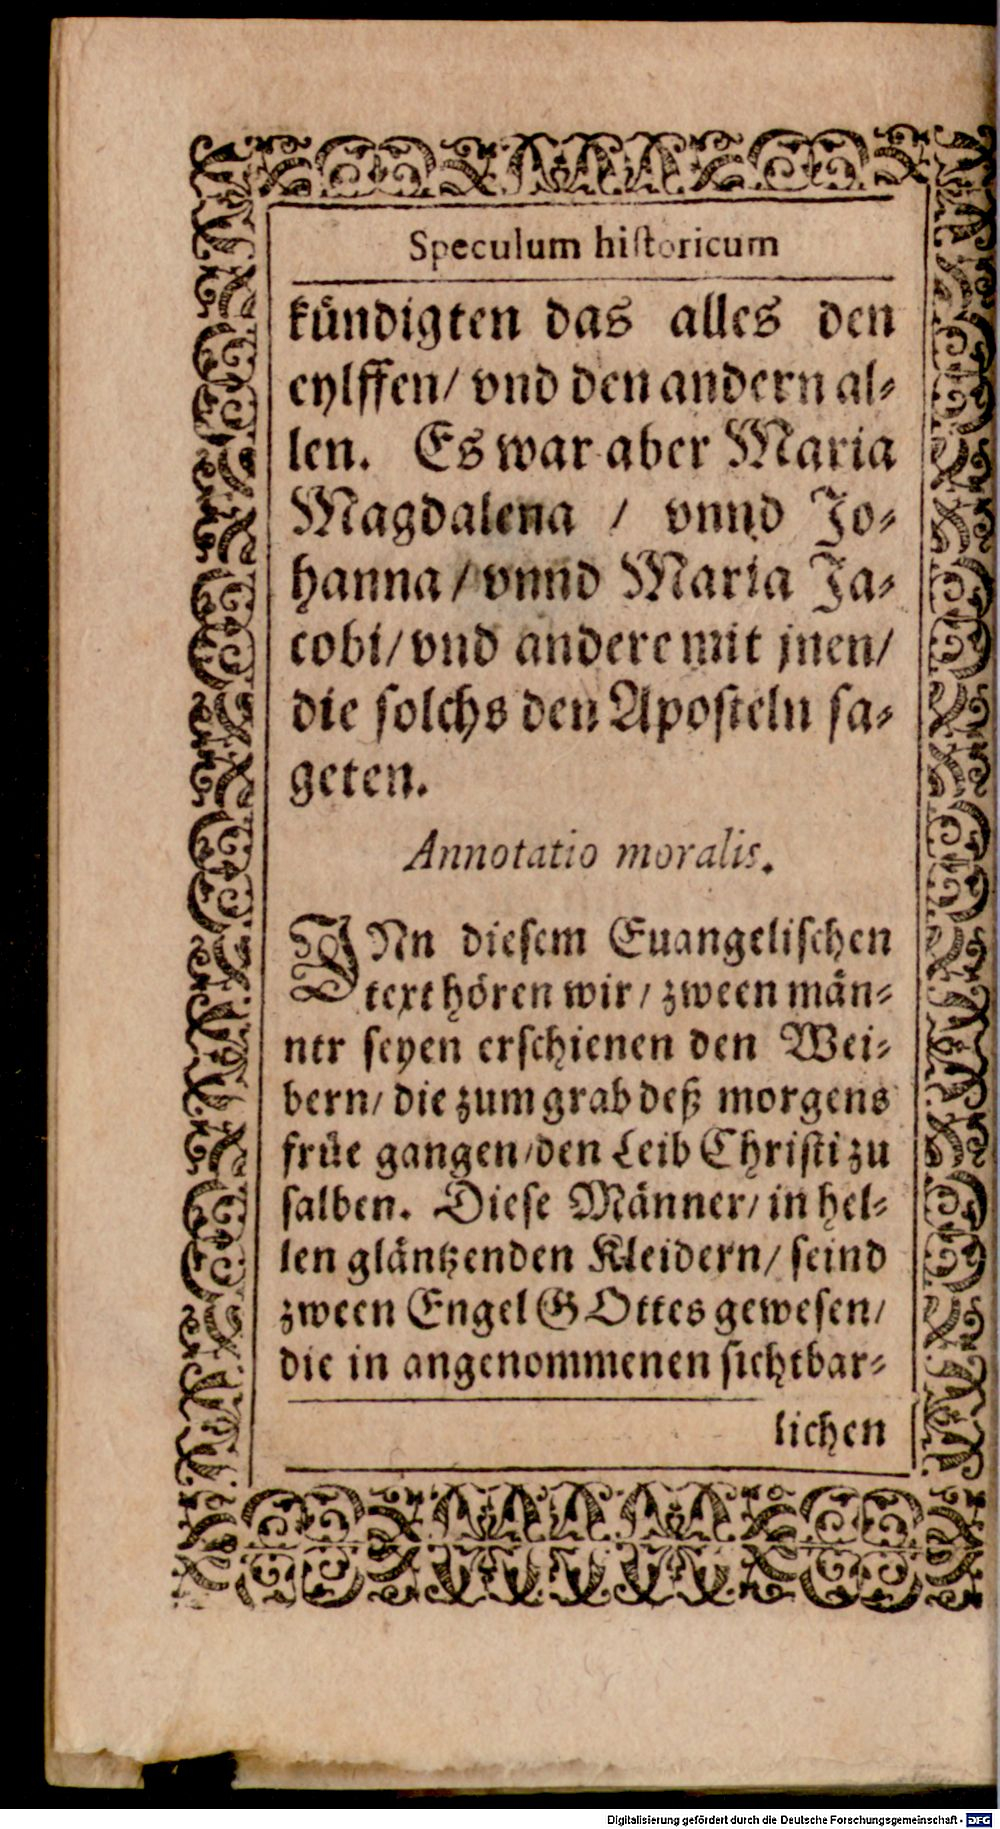 Speculum hiſtoricum
kündigten das alles den
eylffen/ vnd den andern al⸗
len. Es war aber Maria
Magdalena / vnnd Jo⸗
hanna / vnnd Maria Ja⸗
cobi/ vnd andere mit jnen/
die ſolchs den Apoſteln ſa⸗
geten.
Annotatio moralis.
JNn dieſem Euangeliſchen
text hören wir/ zween män⸗
ner ſeyen erſchienen den Wei⸗
bern/ die zum grab deß morgens
früe gangen/ den Leib Chriſti zu
ſalben. Dieſe Männer/ in hel⸗
len gläntzenden Kleidern/ ſeind
zween Engel GOttes geweſen/
die in angenommenen ſichtbar⸗
lichen
Digitalisierung gefördert durch die Deutsche Forschungsgemeinschaft - DFG